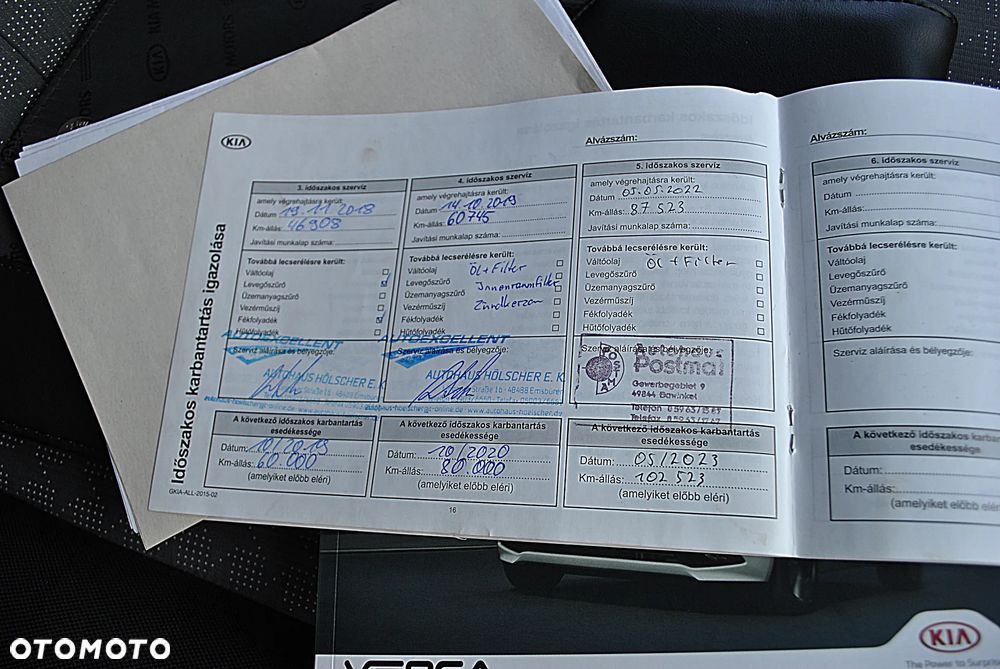 KIA
Időszakos karbantartás igazolása
Alvázszám:
3. időszakos szerviz
amely végrehajtásra került:
Dátum 19.11.2018
Km-állás: 46908
Javítási munkalap száma:
Továbbá lecserélésre került:
Váltóolaj
Levegőszűrő
Üzemanyagszűrő
Vezérműszíj
Fékfolyadék
Hűtőfolyadék
AUTOEXCELLENT
Szerviz aláírása és bélyegzője:
AUTOHAUS HÖLSCHER E. K.
A következő időszakos karbantartás
esedékessége
Dátum: 10/2019
Km-állás: 60.000
(amelyiket előbb eléri)
GKIA-ALL-2015-02
4. időszakos szerviz
amely végrehajtásra került:
Dátum 14.10.2019
Km-állás: 60745
Javítási munkalap száma:
Továbbá lecserélésre került:
Váltóolaj Öl + Filter
Levegőszűrő Innenraumfilter
Üzemanyagszűrő Zündkerzen
Vezérműszíj
Fékfolyadék
Hűtőfolyadék
AUTOEXCELLENT
Szerviz aláírása és bélyegzője:
AUTOHAUS HÖLSCHER E. K.
48488 Emsbüren
www.autohaus-hoelscher.de
A következő időszakos karbantartás
esedékessége
Dátum: 10/2020
Km-állás: 80.000
(amelyiket előbb eléri)
16
5. időszakos szerviz
amely végrehajtásra került:
Dátum 05.05.2022
Km-állás: 87523
Javítási munkalap száma:
Továbbá lecserélésre került:
Váltóolaj Öl + Filter
Levegőszűrő
Üzemanyagszűrő
Vezérműszíj
Fékfolyadék
Hűtőfolyadék
Szerviz aláírása és bélyegzője:
Gewerbegebiet 9
49844 Bawinkel
Telefon 0 59 63/
Telefax 0 59 63/
A következő időszakos karbantartás
esedékessége
Dátum: 05/2023
Km-állás: 102 523
(amelyiket előbb eléri)
Alvázszám:
6. időszakos szerviz
amely végrehajtásra került:
Dátum
Km-állás:
Javítási munkalap száma:
Továbbá lecserélésre került:
Váltóolaj
Levegőszűrő
Üzemanyagszűrő
Vezérműszíj
Fékfolyadék
Hűtőfolyadék
Szerviz aláírása és bélyegzője:
A következő időszakos
esedékessége
Dátum:
Km-állás:
(amelyiket előbb
KIA
The Power to Surprise
OTOMOTO